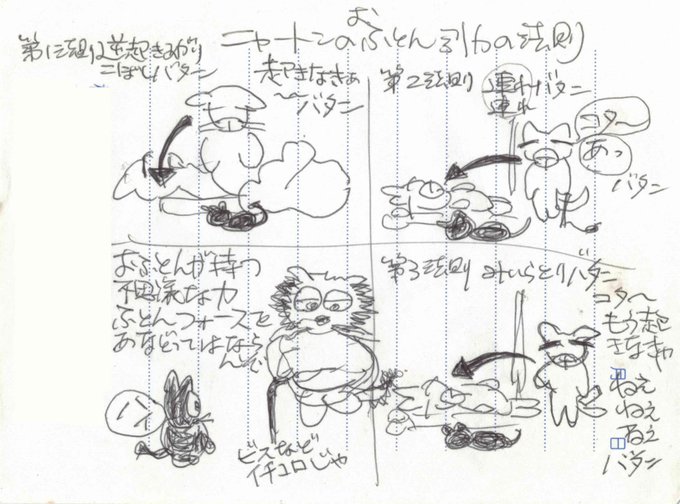 ニャートンのおふとん引力の法則
第1法則は逆起き上がり
こぼしバタン
起きなきぁ
〜〜バタン
第2法則 連れバタン
連れ
コタ〜
あっ
バタン
おふとんが持つ
不思議な力
ふとんフォースを
あなどってはなら
んぞ
ハイ
ビスなど
イチコロじゃ
第3法則 みいらとりバタン
コタ〜
もう起
きなきゃ
ねぇ
ねぇ
ねぇ
バタン